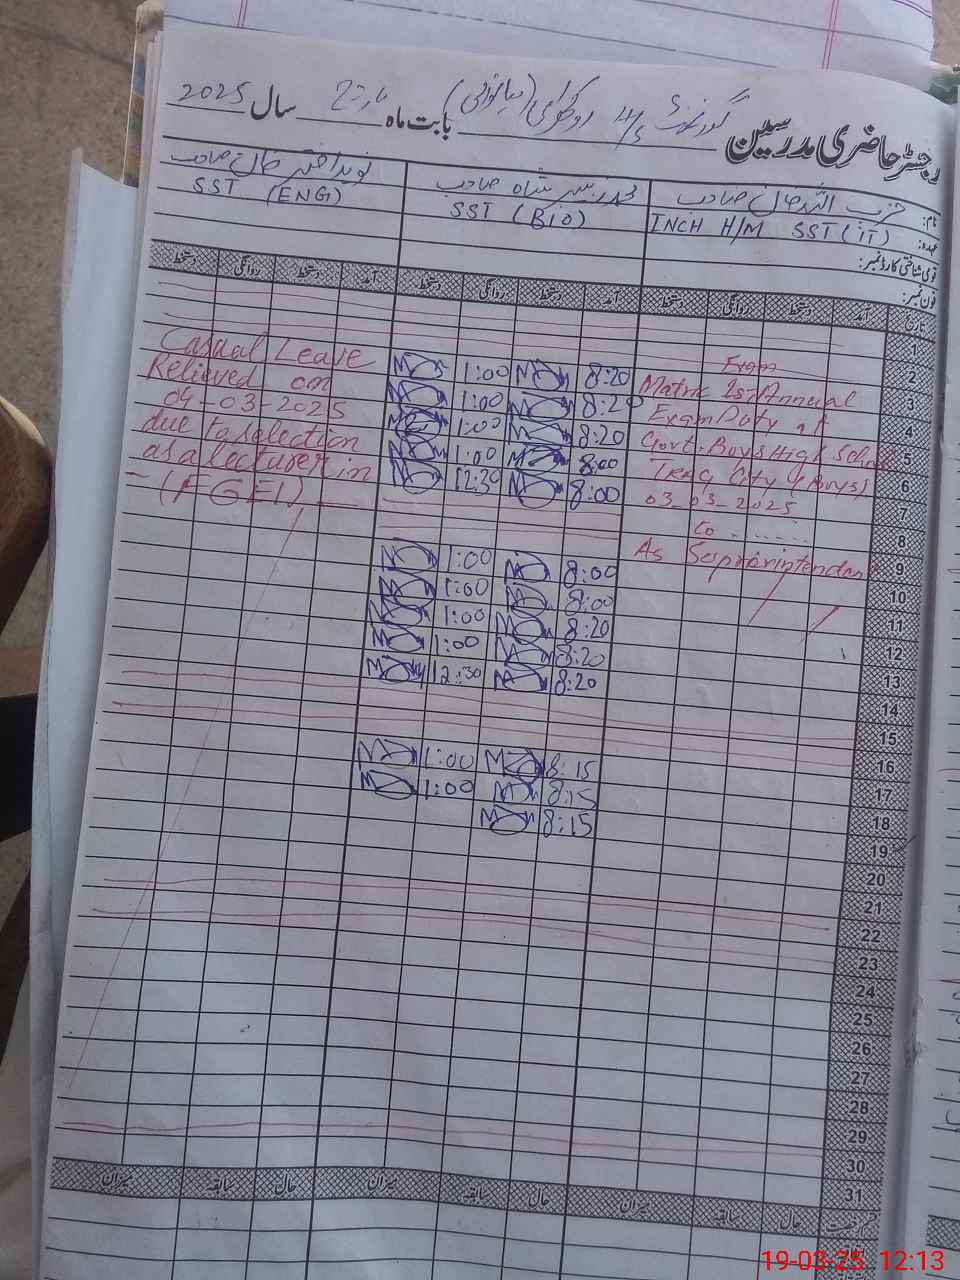 رجسٹر حاضری مدرسین گورنمنٹ H/S بابت ماہ مارچ سال 2025
نام: حزب اللہ خان صاحب
عہدہ: INCH H/M SST (IT)
شاہ صاحب
SST (BIO)
خان صاحب
SST (ENG)
قومی شناختی کارڈ نمبر:
فون نمبر:
تاریخ آمد دستخط روانگی دستخط آمد دستخط روانگی دستخط آمد دستخط روانگی دستخط
1
2
3
4
5
6
7
8
9
10
11
12
13
14
15
16
17
18
19
20
21
22
23
24
25
26
27
28
29
30
31
Exam
Matric 1st Annual
Exam Duty at
Govt. Boys High School
City (Boys)
03-03-2025
to .......
As Supprintendent
8:20 1:00
8:20 1:00
8:20 1:00
8:00 1:00
8:00 12:30
8:00 1:00
8:00 1:00
8:20 1:00
8:20 1:00
8:20 12:30
8:15 1:00
8:15 1:00
8:15
Casual Leave
Relieved on
04-03-2025
due to selection
as a lecturer in
- (FGEI) -
رخصت حال سابقہ میزان حال سابقہ میزان حال سابقہ میزان
19-03-25 12:13